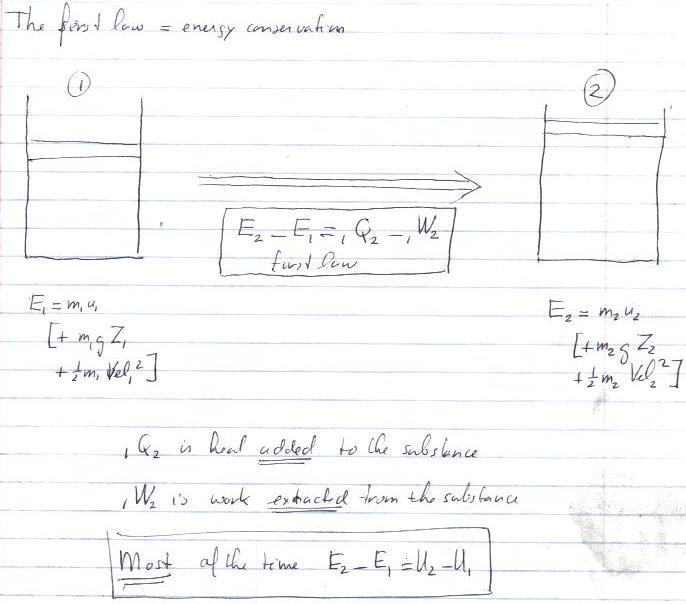 The first law = energy conservation
① ②
E₂ - E₁ = ₁Q₂ - ₁W₂
first law
E₁ = m₁u₁
[+ m₁gZ₁
+ ½m₁ Vel₁²]
E₂ = m₂u₂
[+m₂gZ₂
+ ½m₂ Vel₂²]
₁Q₂ is heat added to the substance
₁W₂ is work extracted from the substance
Most of the time E₂ - E₁ = U₂ - U₁